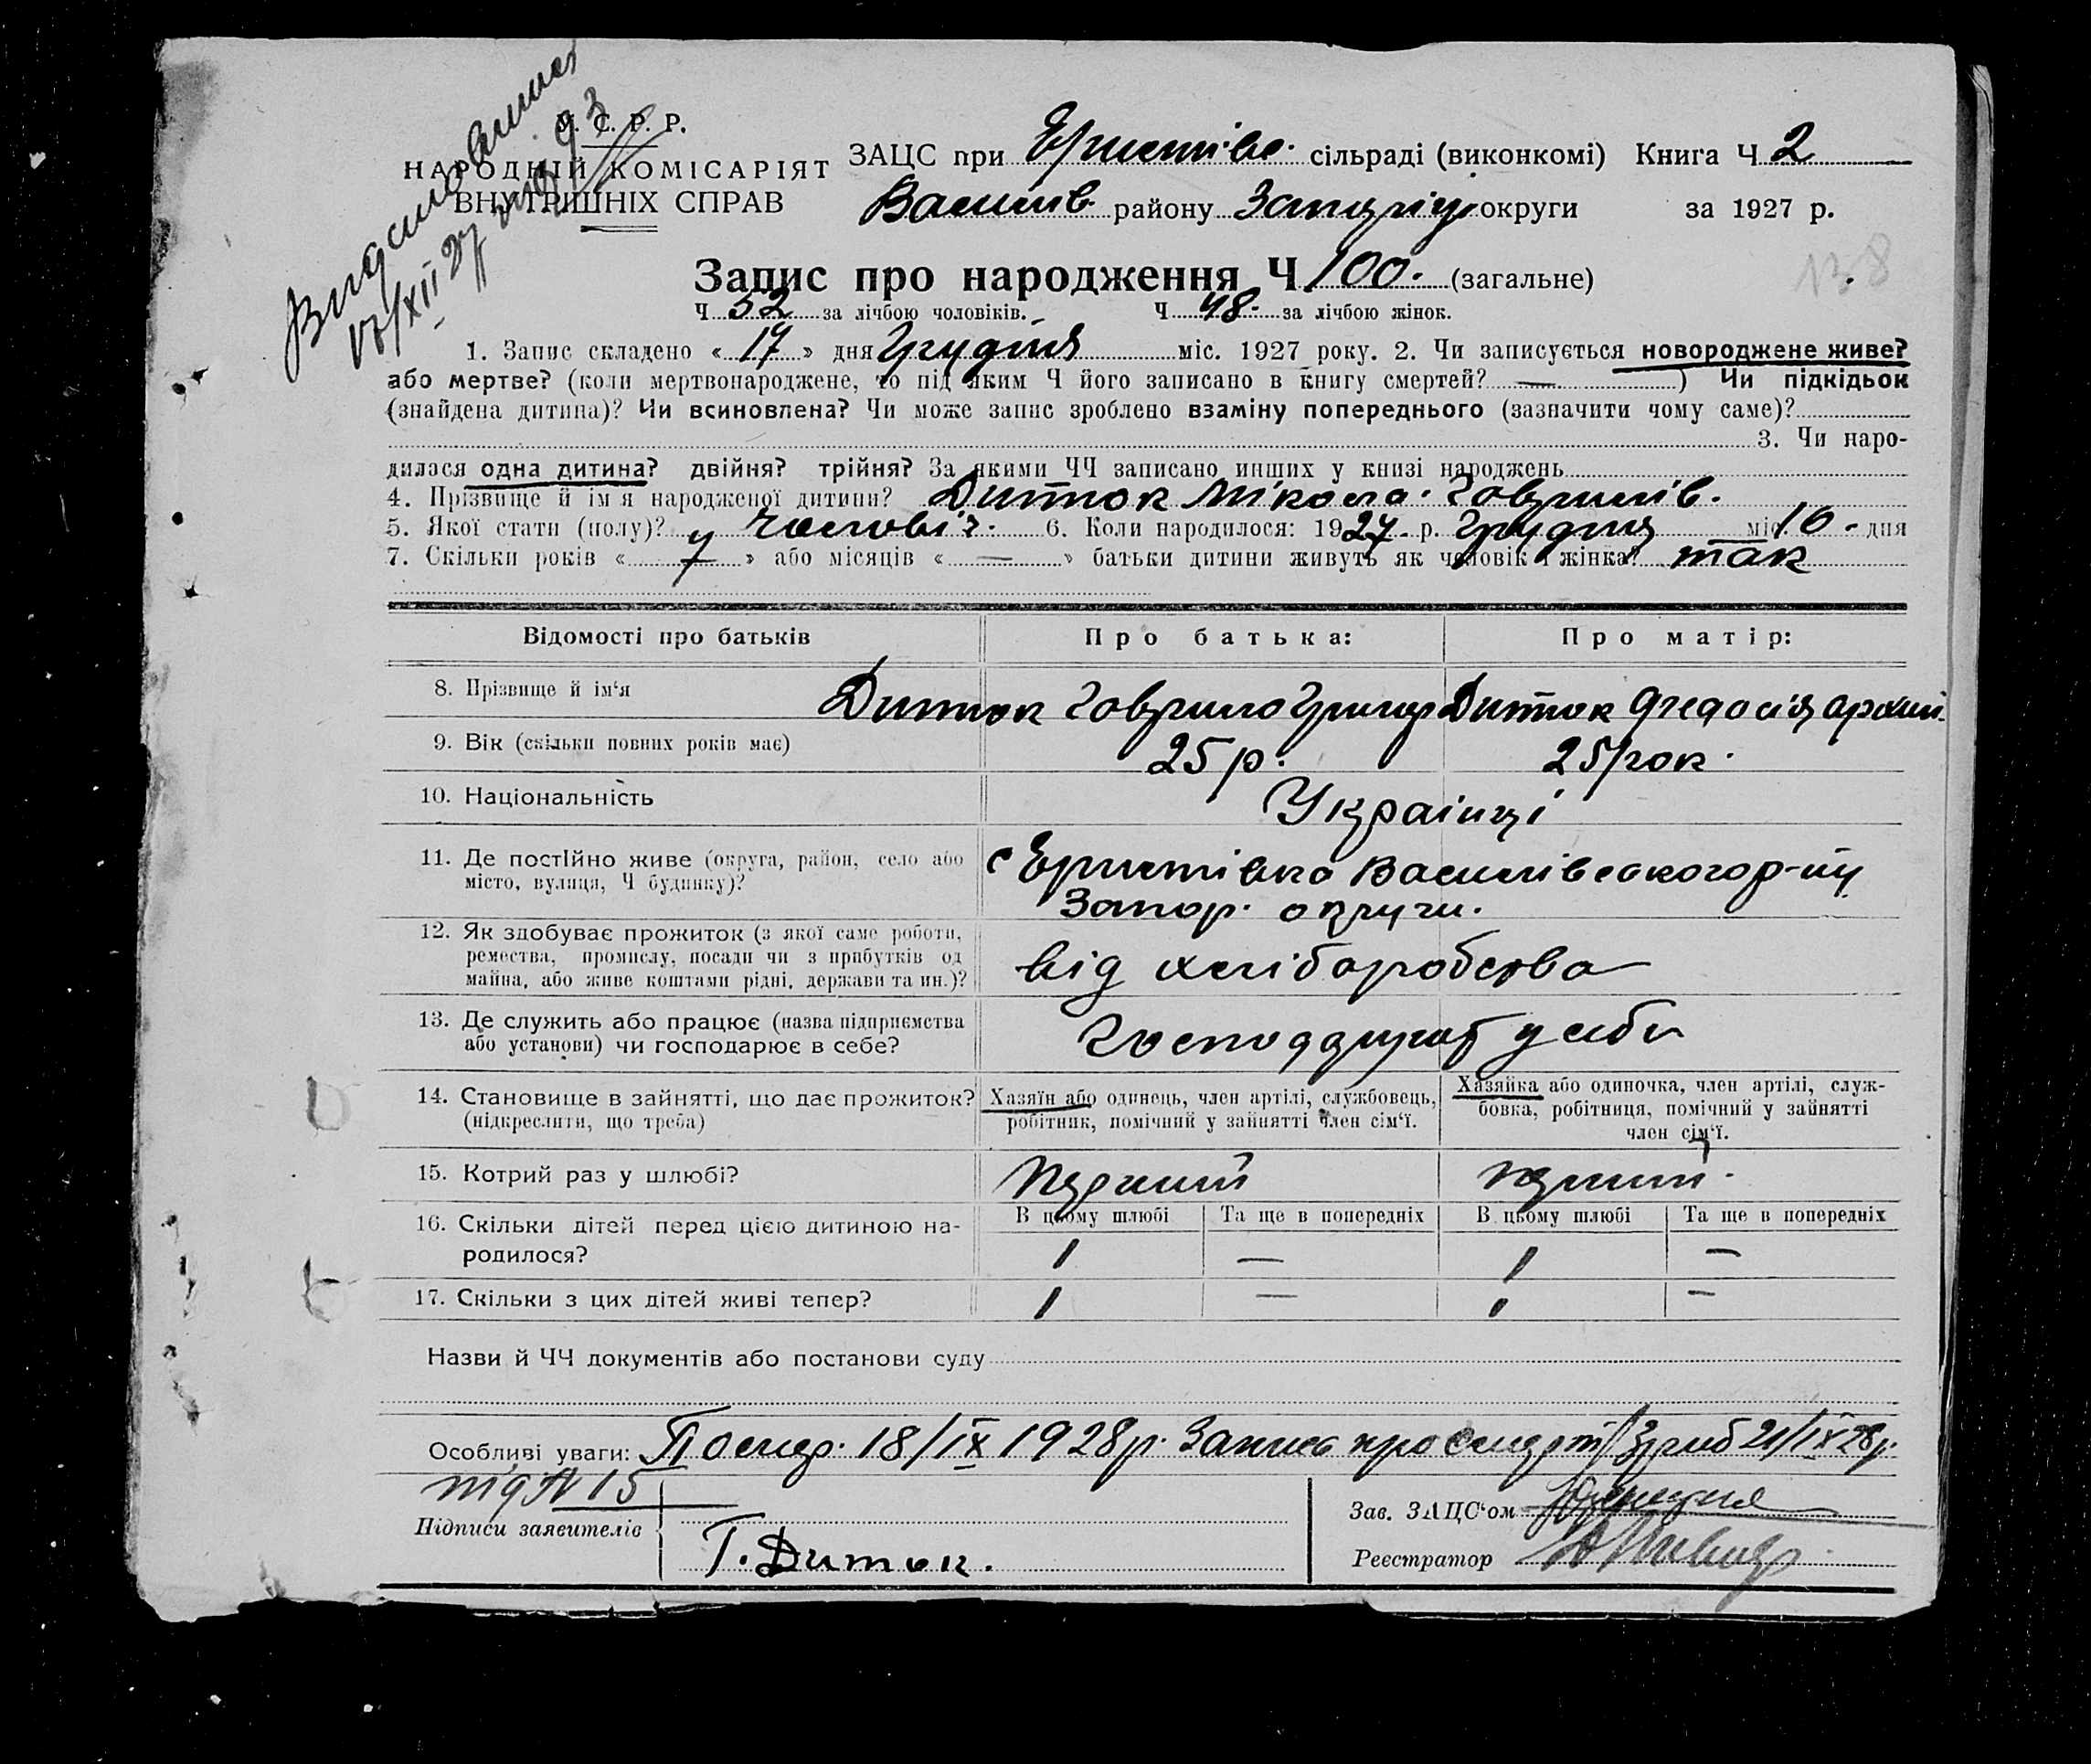 Видано виписъ
17/XII 27 під № 93
У. С. Р. Р.
НАРОДНІЙ КОМІСАРІЯТ
ВНУТРІШНІХ СПРАВ
ЗАЦС при Еристівс. сільраді (виконкомі) Книга Ч 2
Василів району Запоріз округи за 1927 р.
138
Запис про народження Ч 100. (загальне)
Ч 52 за лічбою чоловіків. Ч 48. за лічбою жінок.
1. Запис складено « 17 » дня Грудня міс. 1927 року. 2. Чи записується новороджене живе?
або мертве? (коли мертвонароджене, то під яким Ч його записано в книгу смертей? — ) Чи підкідьок
(знайдена дитина)? Чи всиновлена? Чи може запис зроблено взаміну попереднього (зазначити чому саме)?
3. Чи наро-
дилася одна дитина? двійня? трійня? За якими ЧЧ записано инших у книзі народжень
4. Прізвище й ім'я народженої дитини? Диток Мікола. Гаврилів.
5. Якої стати (полу)? чоловіч. 6. Коли народилося: 1927. р. Грудня міс 10. дня
7. Скільки років « » або місяців « — » батьки дитини живуть як чоловік і жінка? так
Відомості про батьків Про батька: Про матір:
8. Прізвище й ім'я Диток Гаврило Григор Диток Федосія Архип.
9. Вік (скільки повних років має) 25 р. 25 рок.
10. Національність Украінці
11. Де постійно живе (округа, район, село або
місто, вулиця, Ч будинку)?
с Еристівка Василівського р-ну
Запор. округи.
12. Як здобуває прожиток (з якої саме роботи,
ремества, промислу, посади чи з прибутків од
майна, або живе коштами рідні, держави та ин.)?
від хліборобства
13. Де служить або працює (назва підприємства
або установи) чи господарює в себе?
у себи
14. Становище в зайнятті, що дає прожиток?
(підкреслити, що треба)
Хазяїн або одинець, член артілі, службовець,
робітник, помічний у зайнятті член сім'ї.
Хазяйка або одиночка, член артілі, служ-
бовка, робітниця, помічний у зайнятті
член сім'ї.
15. Котрий раз у шлюбі? перший перший.
16. Скільки дітей перед цією дитиною на-
родилося?
В цьому шлюбі Та ще в попередніх В цьому шлюбі Та ще в попередніх
1 — 1 —
17. Скільки з цих дітей живі тепер? 1 — 1 —
Назви й ЧЧ документів або постанови суду
Особливі уваги: Помер. 18/IX 1928 р. Запис про смерть Зроб 21/IX 28 р.
під № 15
Підписи заявителів
Г. Диток.
Зав. ЗАЦС'ом
Реєстратор